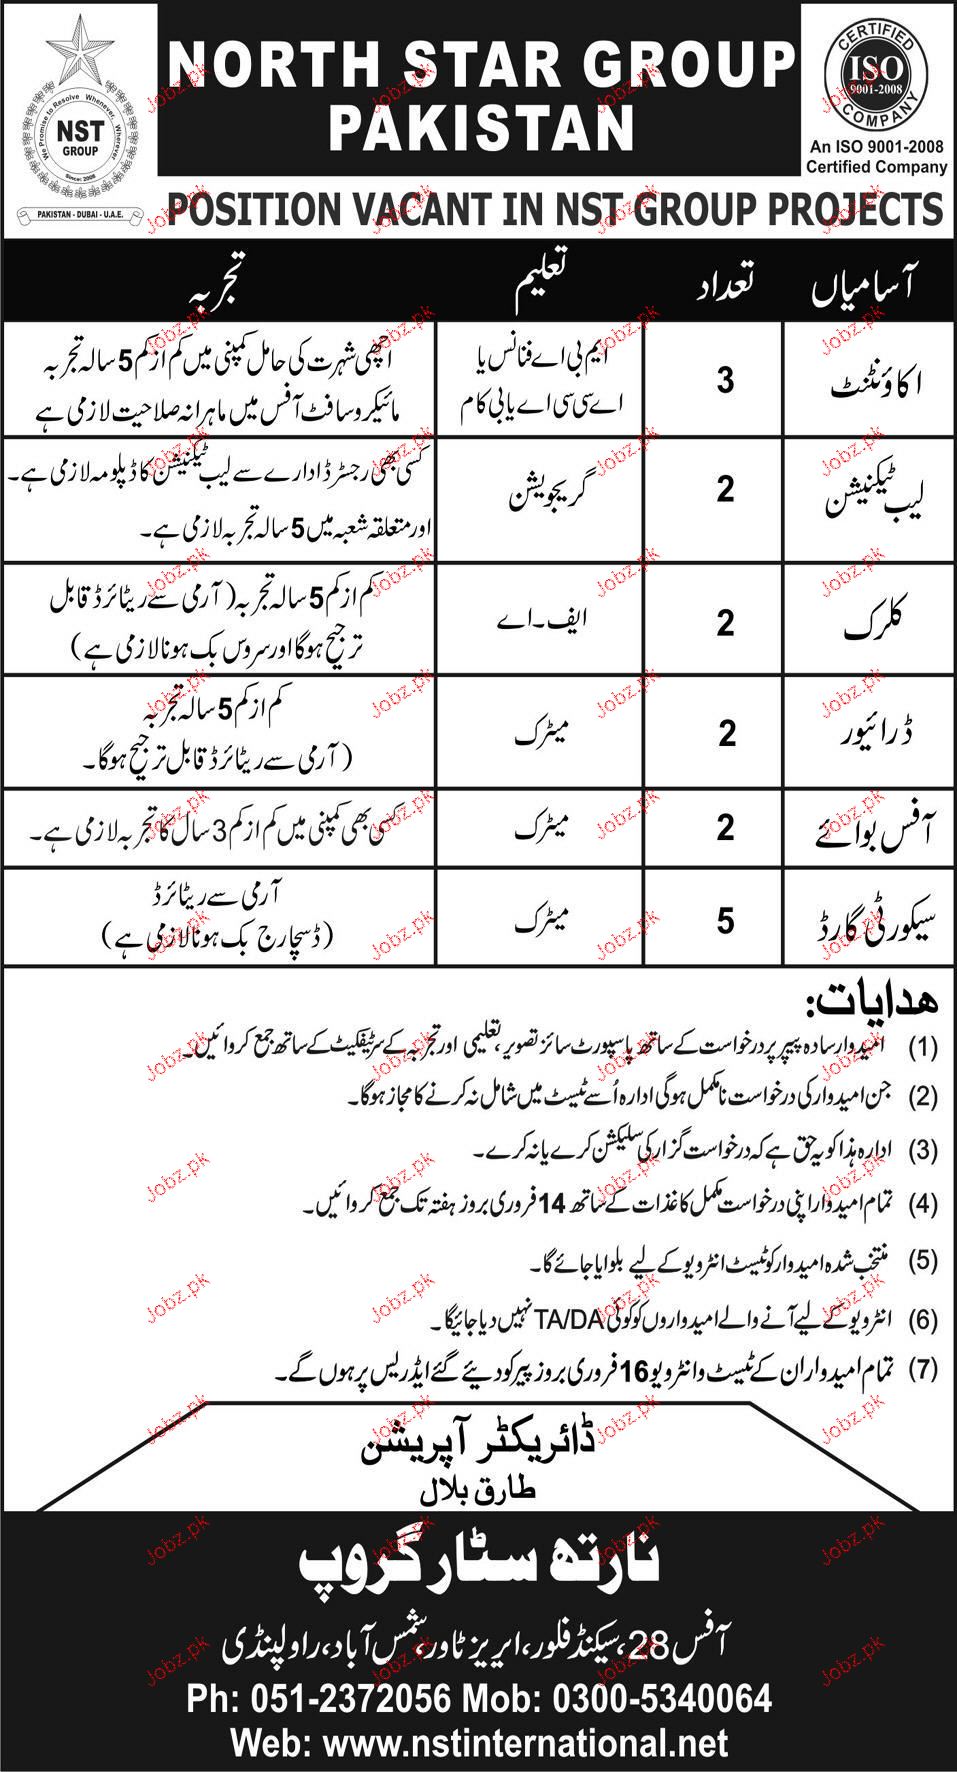 NORTH STAR GROUP
PAKISTAN
We Promise to Resolve Whenever, Wherever
NST
GROUP
Since: 2008
PAKISTAN - DUBAI - U.A.E.
CERTIFIED
ISO
9001-2008
COMPANY
An ISO 9001-2008
Certified Company
POSITION VACANT IN NST GROUP PROJECTS
آسامیاں تعداد تعلیم تجربہ
اکاؤنٹنٹ 3 ایم بی اے فنانس یا اچھی شہرت کی حامل کمپنی میں کم از کم 5 سالہ تجربہ
اے سی سی اے یا بی کام مائیکروسافٹ آفس میں ماہرانہ صلاحیت لازمی ہے
لیب ٹیکنیشن 2 گریجویشن کسی بھی رجسٹرڈ ادارے سے لیب ٹیکنیشن کا ڈپلومہ لازمی ہے۔
اور متعلقہ شعبہ میں 5 سالہ تجربہ لازمی ہے۔
کلرک 2 ایف۔اے کم از کم 5 سالہ تجربہ (آرمی سے ریٹائرڈ قابل
ترجیح ہوگا اور سروس بک ہونا لازمی ہے)
ڈرائیور 2 میٹرک کم از کم 5 سالہ تجربہ
(آرمی سے ریٹائرڈ قابل ترجیح ہوگا۔
آفس بوائے 2 میٹرک کسی بھی کمپنی میں کم از کم 3 سال کا تجربہ لازمی ہے۔
سیکورٹی گارڈ 5 میٹرک آرمی سے ریٹائرڈ
(ڈسچارج بک ہونا لازمی ہے)
ھدایات:
(1) امیدوار سادہ پیپر پر درخواست کے ساتھ پاسپورٹ سائز تصویر، تعلیمی اور تجربہ کے سرٹیفکیٹ کے ساتھ جمع کروائیں۔
(2) جن امیدوار کی درخواست نامکمل ہوگی ادارہ اُسے ٹیسٹ میں شامل نہ کرنے کا مجاز ہوگا۔
(3) ادارہ ہذا کو یہ حق ہے کہ درخواست گزار کی سلیکشن کرے یا نہ کرے۔
(4) تمام امیدوار اپنی درخواست مکمل کاغذات کے ساتھ 14 فروری بروز ہفتہ تک جمع کروائیں۔
(5) منتخب شدہ امیدوار کو ٹیسٹ انٹرویو کے لیے بلوایا جائے گا۔
(6) انٹرویو کے لیے آنے والے امیدواروں کو کوئی TA/DA نہیں دیا جائیگا۔
(7) تمام امیدواران کے ٹیسٹ و انٹرویو 16 فروری بروز پیر کو دیئے گئے ایڈریس پر ہوں گے۔
ڈائریکٹر آپریشن
طارق بلال
نارتھ سٹار گروپ
آفس 28، سیکنڈ فلور، ایریز ٹاور، شمس آباد، راولپنڈی
Ph: 051-2372056 Mob: 0300-5340064
Web: www.nstinternational.net